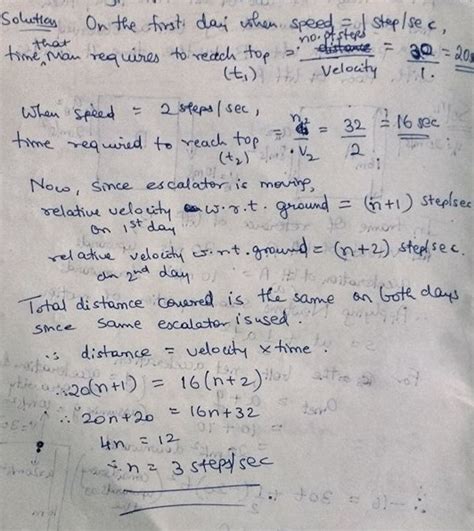 Solution On the first day when speed = 1 step/sec,
time that man requires to reach top (t₁) = no. of steps / Velocity = 20 / 1 = 20s
When speed = 2 steps/sec,
time required to reach top (t₂) = n₂ / V₂ = 32 / 2 = 16 sec
Now, since escalator is moving,
relative velocity w.r.t. ground = (n+1) step/sec
on 1st day
relative velocity w.r.t. ground = (n+2) step/sec.
on 2nd day
Total distance covered is the same on both days
since same escalator is used.
∴ distance = velocity × time.
∴ 20(n+1) = 16(n+2)
∴ 20n+20 = 16n+32
4n = 12
∴ n = 3 steps/sec